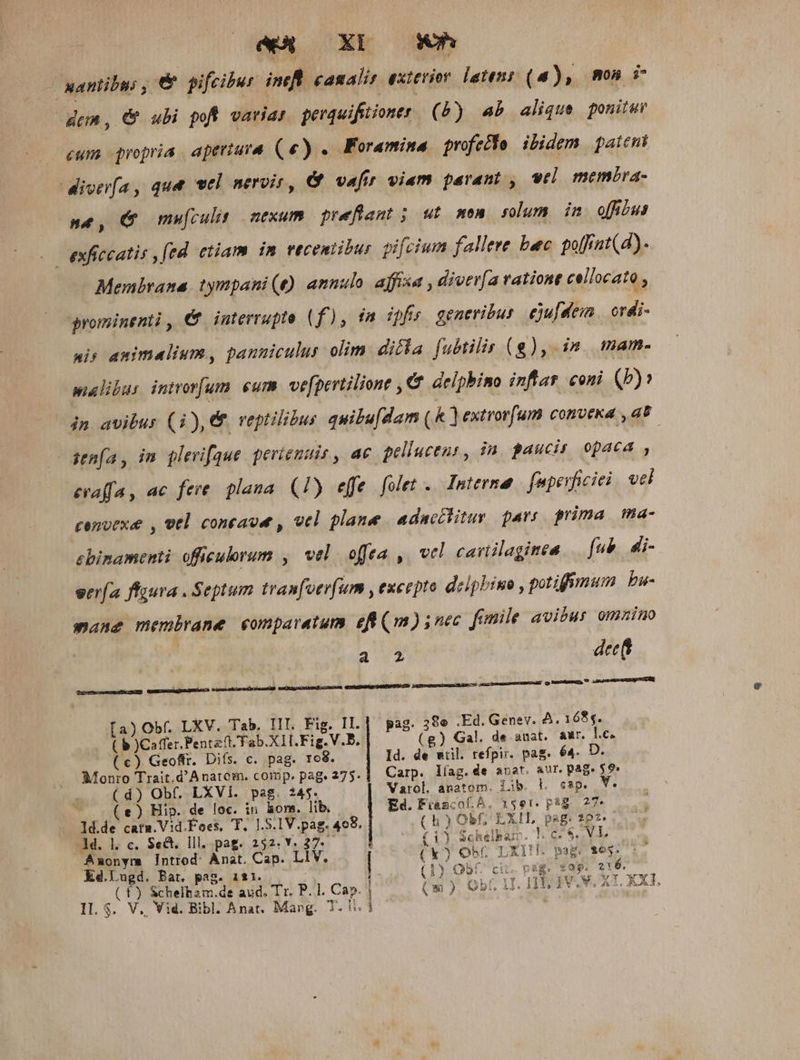 XI
nantibus, & piſcibus ineſt canalis exterior latens (a), non i-
dem, & ubi poſt varias perquiſitiones (b) ab alique ponitur
cum propria apertura (c). Foramina profecto ibidem patent
diverſa, quæ vel nervis, & vaſis viam parant, vel membra-
næ, & muſculis nexum præſtant; ut non solum in oſſibus
exſiccatis, ſed etiam in recentibus piſcium fallere hæc poſſint(d).
Membrana tympani (e) annulo affixa, diverſa ratione collocato,
prominenti, & interrupto (f), in ipſis generibus ejuſdem ordi-
nis animalium, panniculus olim dicta ſubtilis (g), in mam-
malibus introrſum cum veſpertilione, & delphino inſtar coni (h);
in avibus (i), & reptilibus quibuſdam (k) extrorſum convexa, at
tenſa, in pleriſque pertenuis, ac pellucens, in paucis opaca,
craſſa, ac fere plana (l) eſſe ſolet. Internæ ſuperficiei vel
convexæ, vel concavæ, vel planæ adnectitur pars prima ma-
chinamenti oſſiculorum, vel oſſea, vel cartilaginea ſub di-
verſa figura. Septum tranſverſum, excepto delphino, potiſſimum hu-
manæ membranæ comparatum eſt (m); nec ſimile avibus omnino
a 2 deeſt
(a) Obſ. LXV. Tab. III. Fig. II.
(b) Caſſer. Pentæſt. Tab. XII. Fig. V.B.
(c) Geoffr. Diſs. c. pag. 108.
Monro Trait. d'Anatom. comp. pag. 275.
(d) Obſ. LXVI. pag. 245.
(e) Hip. de loc. in hom. lib.
Id. de carn. Vid. Foes. T. I. S. IV. pag. 408.
Id. l. c. Sect. III. pag. 252. V. 37.
Anonym Introd. Anat. Cap. LIV.
Ed. Lugd. Bat. pag. 121.
(f) Schelham. de aud. Tr. P. I. Cap.
II. §. V. Vid. Bibl. Anat. Mang. T. II.
pag. 380. Ed. Genev. A. 1685.
(g) Gal. de anat. aur. l.c.
Id. de util. reſpir. pag. 64. D.
Carp. Iſag. de anat. aur. pag. 59.
Varol. anatom. Lib. I. cap. V.
Ed. Francof. A. 1591. pag. 27.
(h) Obſ. LXII. pag. 202.
(i) Schelham. l. c. §. VI.
(k) Obſ. LXIII. pag. 205.
(l) Obſ. cit. pag. 209. 216.
(m) Obſ. II. III. IV. V. XI. XXI.